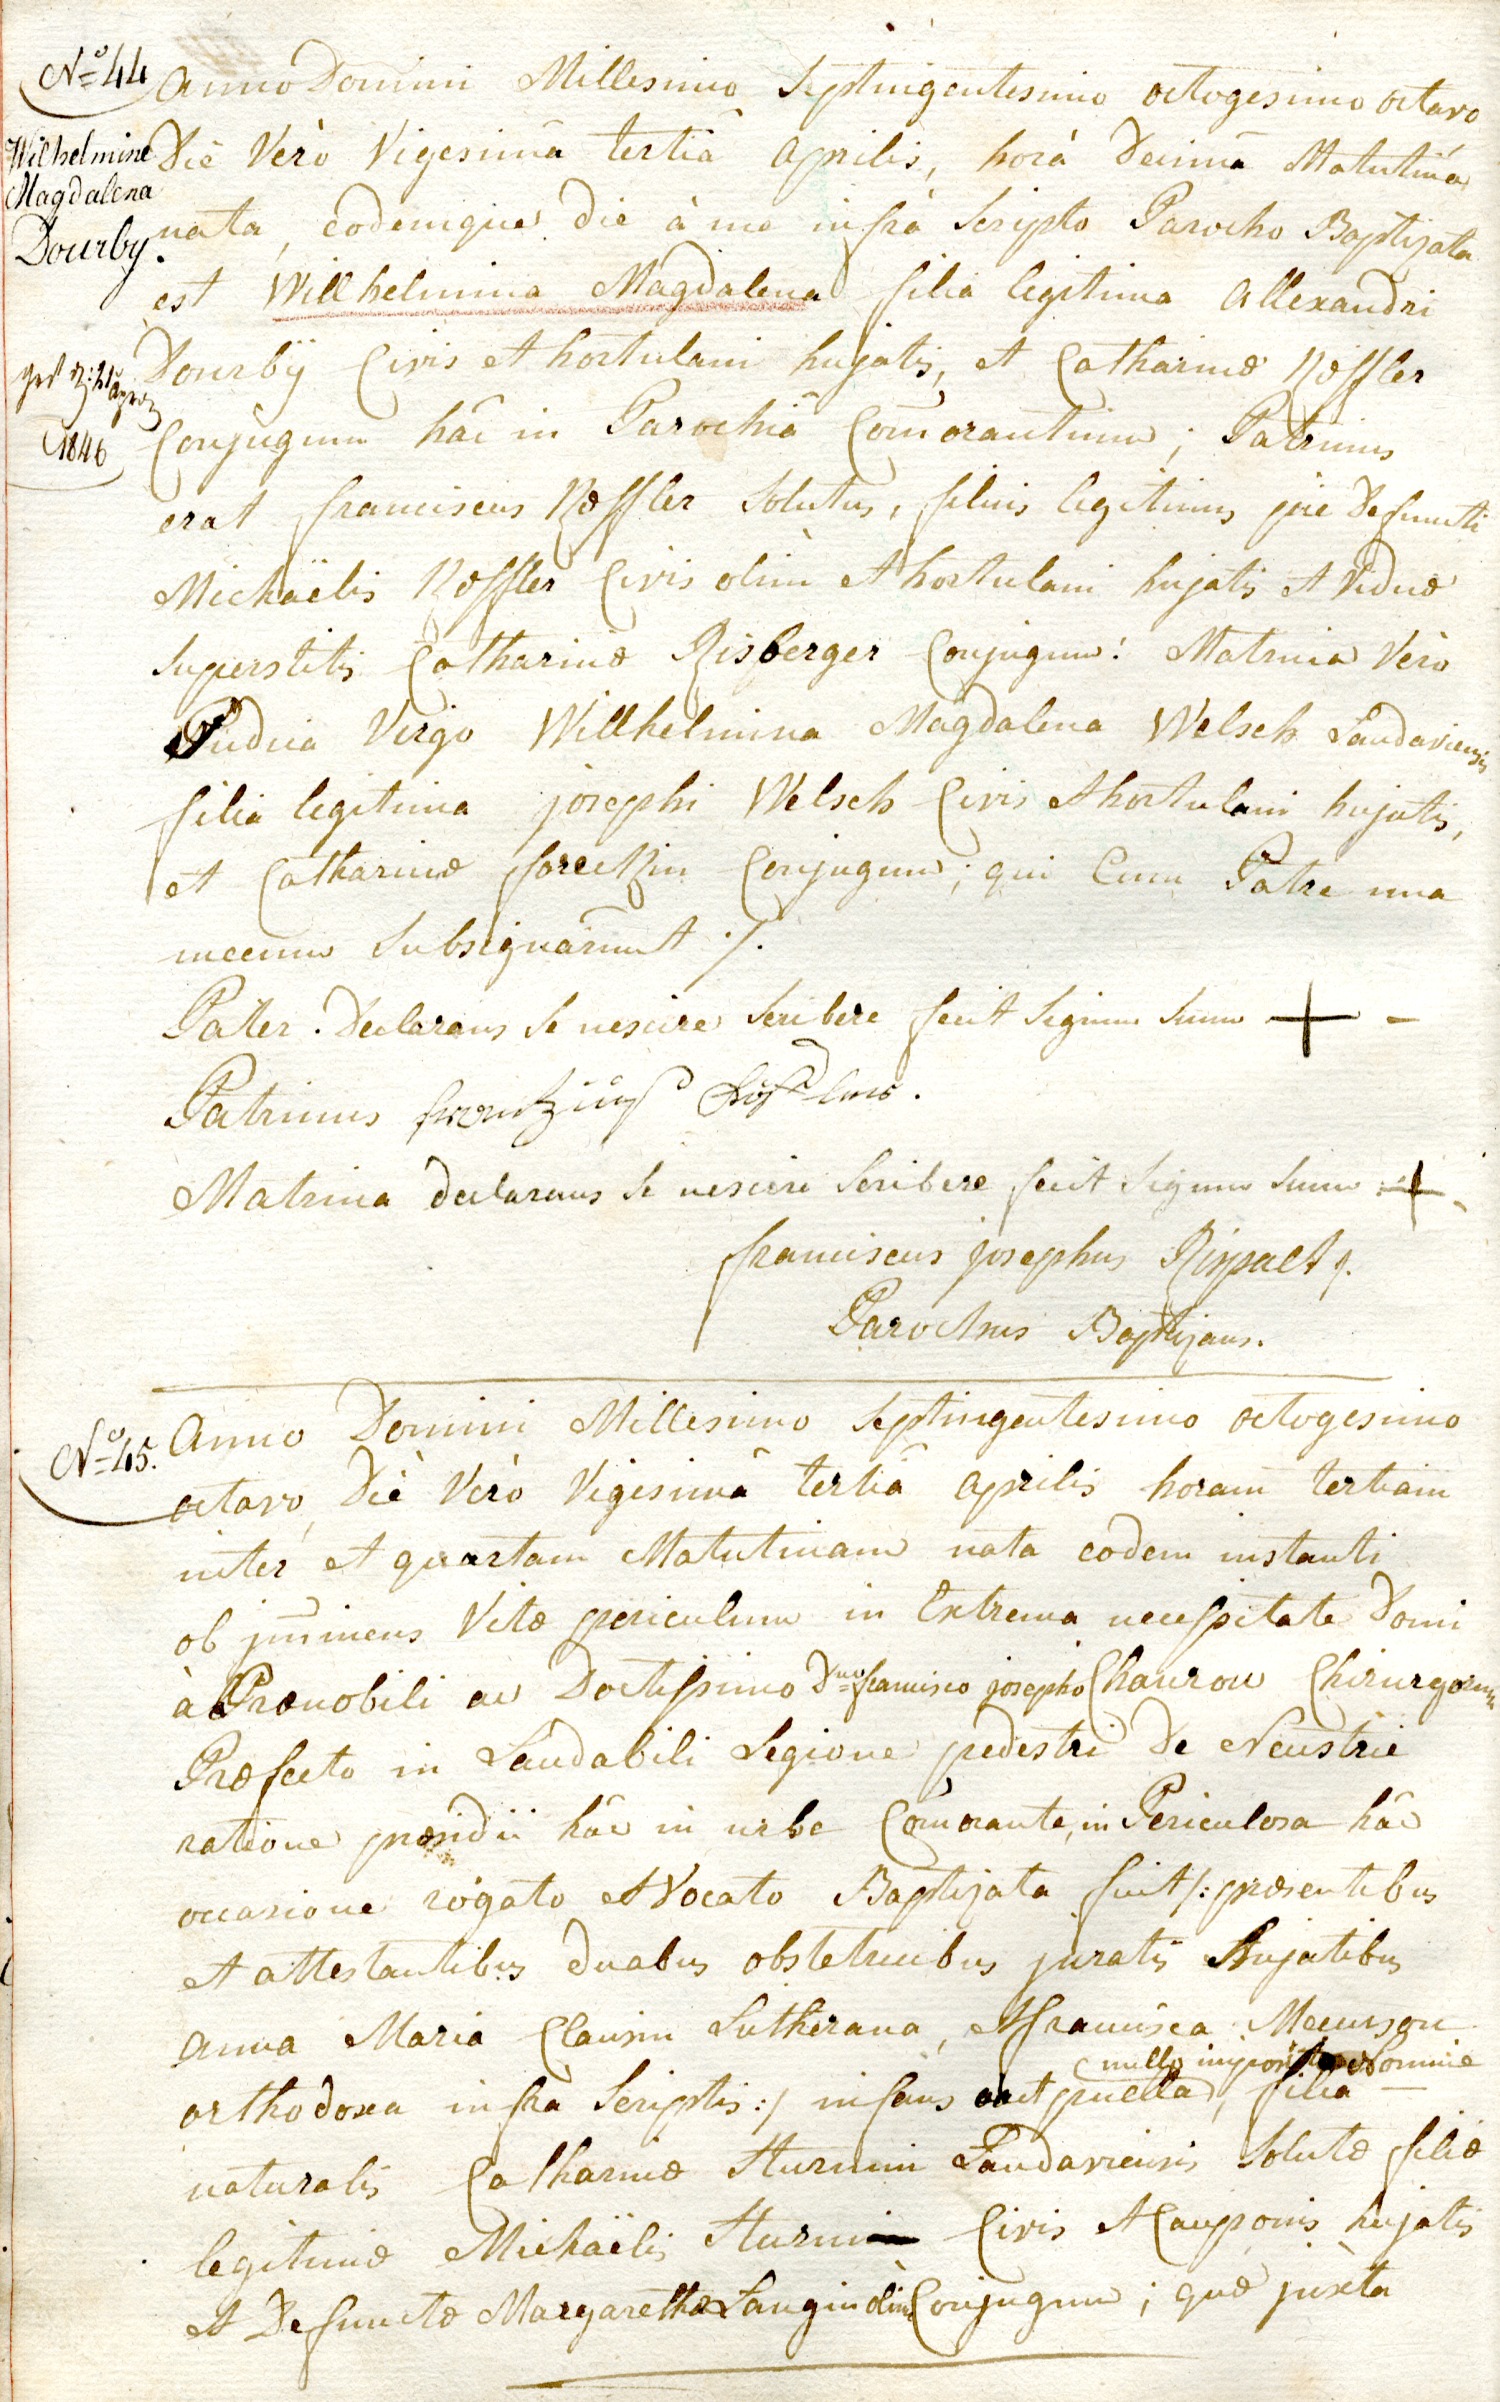 No 44
Wilhelmine
Magdalena
Dourby.
1846
Anno Domini Millesimo Septingentesimo octogesimo octavo
Die Verò Vigesimâ tertiâ Aprilis, horâ Decimâ Matutinâ
nata, eodemque die à me infrà Scripto Parocho Baptizata
est Willhelmina Magdalena filia legitima Allexandri
Dourbÿ Civis et hortulani hujatis, et Catharinæ Kœffler
Conjugum hâc in Parochiâ Com̄orantium; Patrinus
erat franciscus Kœffler Solutus, filius legitimus pie Defuncti
Michaëlis Kœffler Civis olim et hortulani hujatis et Viduæ
Superstitis Catharinæ Risberger Conjugum: Matrina Verò
Pudica Virgo Willhelmina Magdalena Welsch Landaviensis
filia legitima josephi Welsch Civis et hortulani hujatis,
et Catharinæ Conjugum; qui Cum Patre una
mecum Subsignârunt ./.
Pater Declarans Se nescire Scribere fecit Signum Suum + -
Patrinus
Matrina declarans Se nescire Scribere fecit Signum Suum + -
franciscus josephus
Parochus Baptizans.
No 45.
Anno Domini Millesimo Septingentesimo octogesimo
octavo, Diè Verò Vigesimâ tertiâ Aprilis horam tertiam
inter et quartam Matutinam nata eodem instanti
ob im̄inens Vitæ periculum in Extrema necessitate Domi
à Prænobili ac Doctissimo Dno francisco josepho Chauron Chirurgorum
Præfecto in Laudabili Legione pedestri De Neustrie
ratione præsidii hâc in urbe Com̄orante, in Periculosa hâc
occasione rogato et Vocato Baptizata fuit /: præsentibus
et attestantibus duabus obstetricibus juratis hujatibus
Anna Maria Clausin Lutherana, et francisca
nullo imposito Nomine
orthodoxa infra Scriptis :/ infans puella, filia
naturalis Catharinæ Sturmin Landaviensis Solutæ filiæ
legitimæ Michaëlis Sturm Civis et Cauponis hujatis
et Defunctæ Margarethæ Langin olim Conjugum; quæ juxta